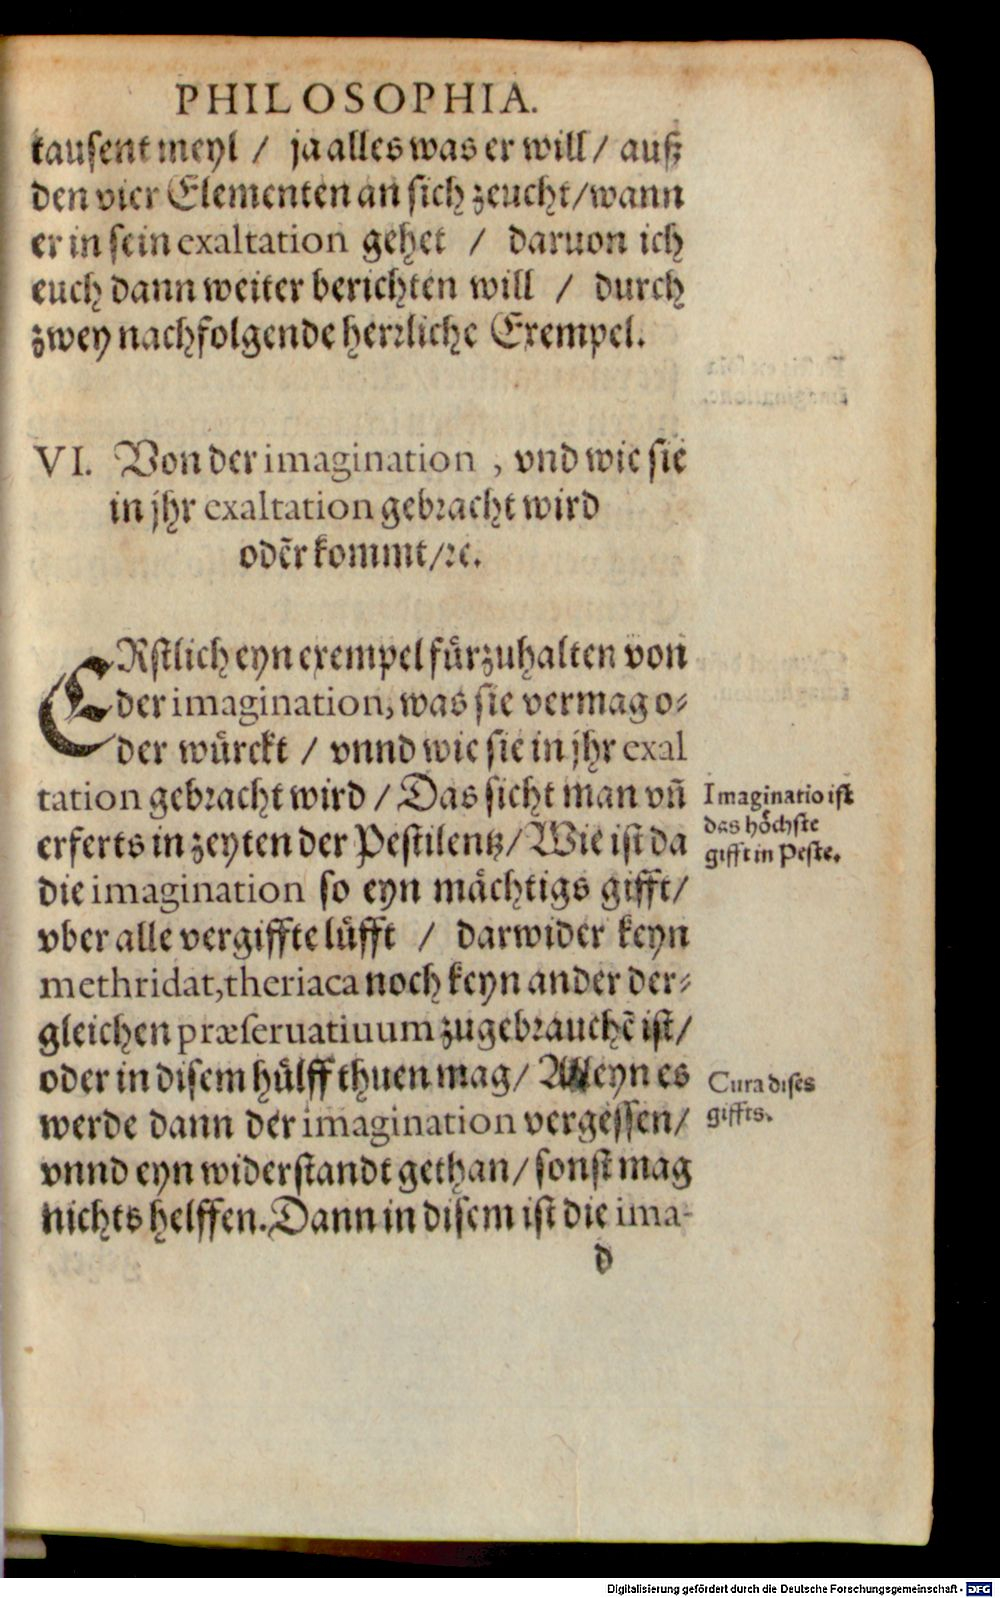 PHILOSOPHIA.
tausent meyl / ja alles was er will / auß
den vier Elementen an sich zeucht / wann
er in sein exaltation gehet / daruon ich
euch dann weiter berichten will / durch
zwey nachfolgende herrliche Exempel.
VI. Von der imagination, vnd wie sie
in jhr exaltation gebracht wird
odēr kommt / ꝛc.
ERstlich eyn exempel fürzuhalten von
der imagination, was sie vermag o-
der würckt / vnnd wie sie in jhr exal
tation gebracht wird / Das sicht man vn̄
erferts in zeyten der Pestilentz / Wie ist da
die imagination so eyn mächtigs gifft /
vber alle vergiffte lüfft / darwider keyn
methridat, theriaca noch keyn ander der-
gleichen præseruatiuum zugebrauchē ist /
oder in disem hülff thuen mag / Alleyn es
werde dann der imagination vergessen /
vnnd eyn widerstandt gethan / sonst mag
nichts helffen. Dann in disem ist die ima-
d
Imaginatio ist
das höchste
gifft in Peste.
Cura dises
giffts.
Digitalisierung gefördert durch die Deutsche Forschungsgemeinschaft - DFG